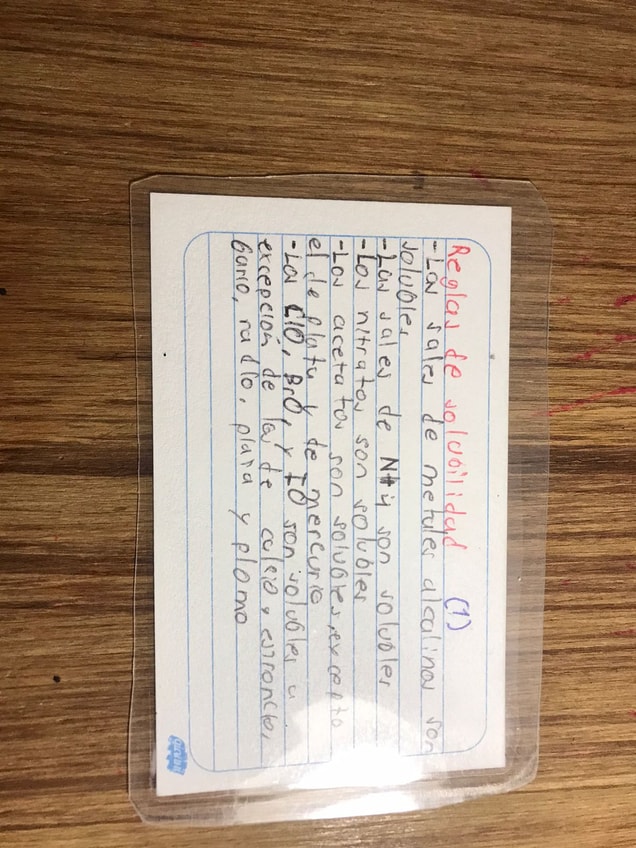 Reglas de solubilidad (1)
- Las sales de metales alcalinos son
solubles
- Las sales de NH4 son solubles
- Los nitratos son solubles
- Los acetatos son solubles, excepto
el de plata y de mercurio
- Los ClO, BrO, y IO son solubles a
excepción de las de calcio, estroncio,
bario, radio, plata y plomo